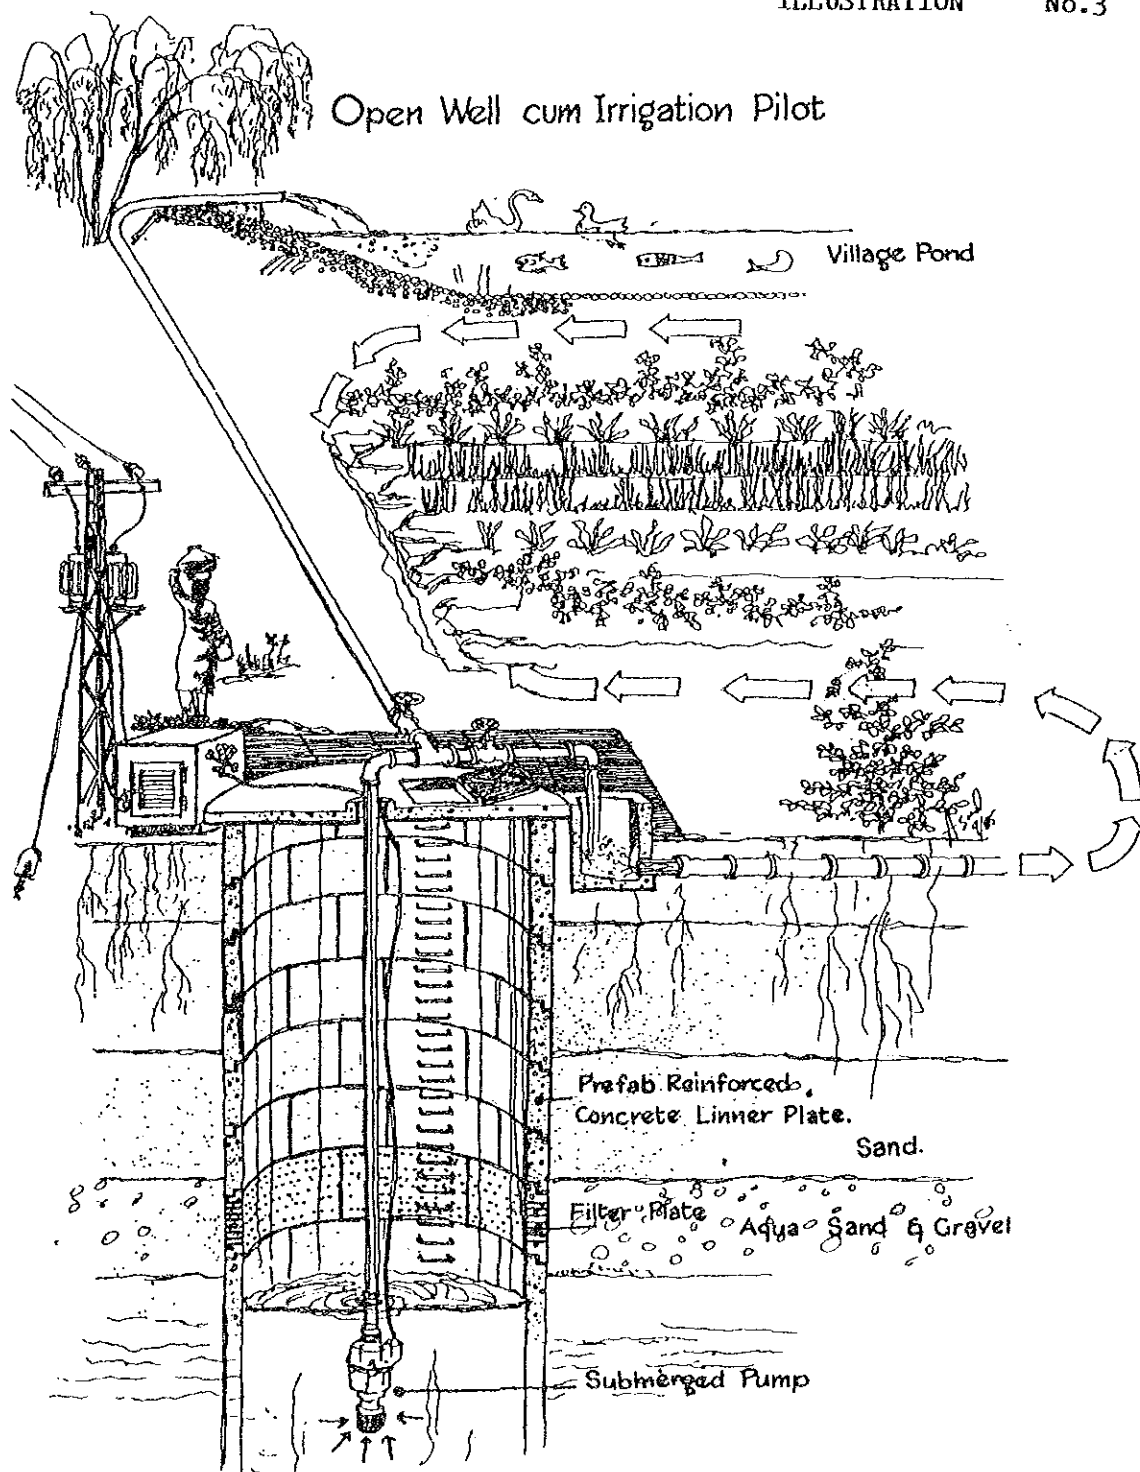 ILLUSTRATION No.3
Open Well cum Irrigation Pilot
Village Pond
Prefab Reinforced.
Concrete Linner Plate.
Sand.
Filter Plate
Aqua Sand & Gravel
Submerged Pump